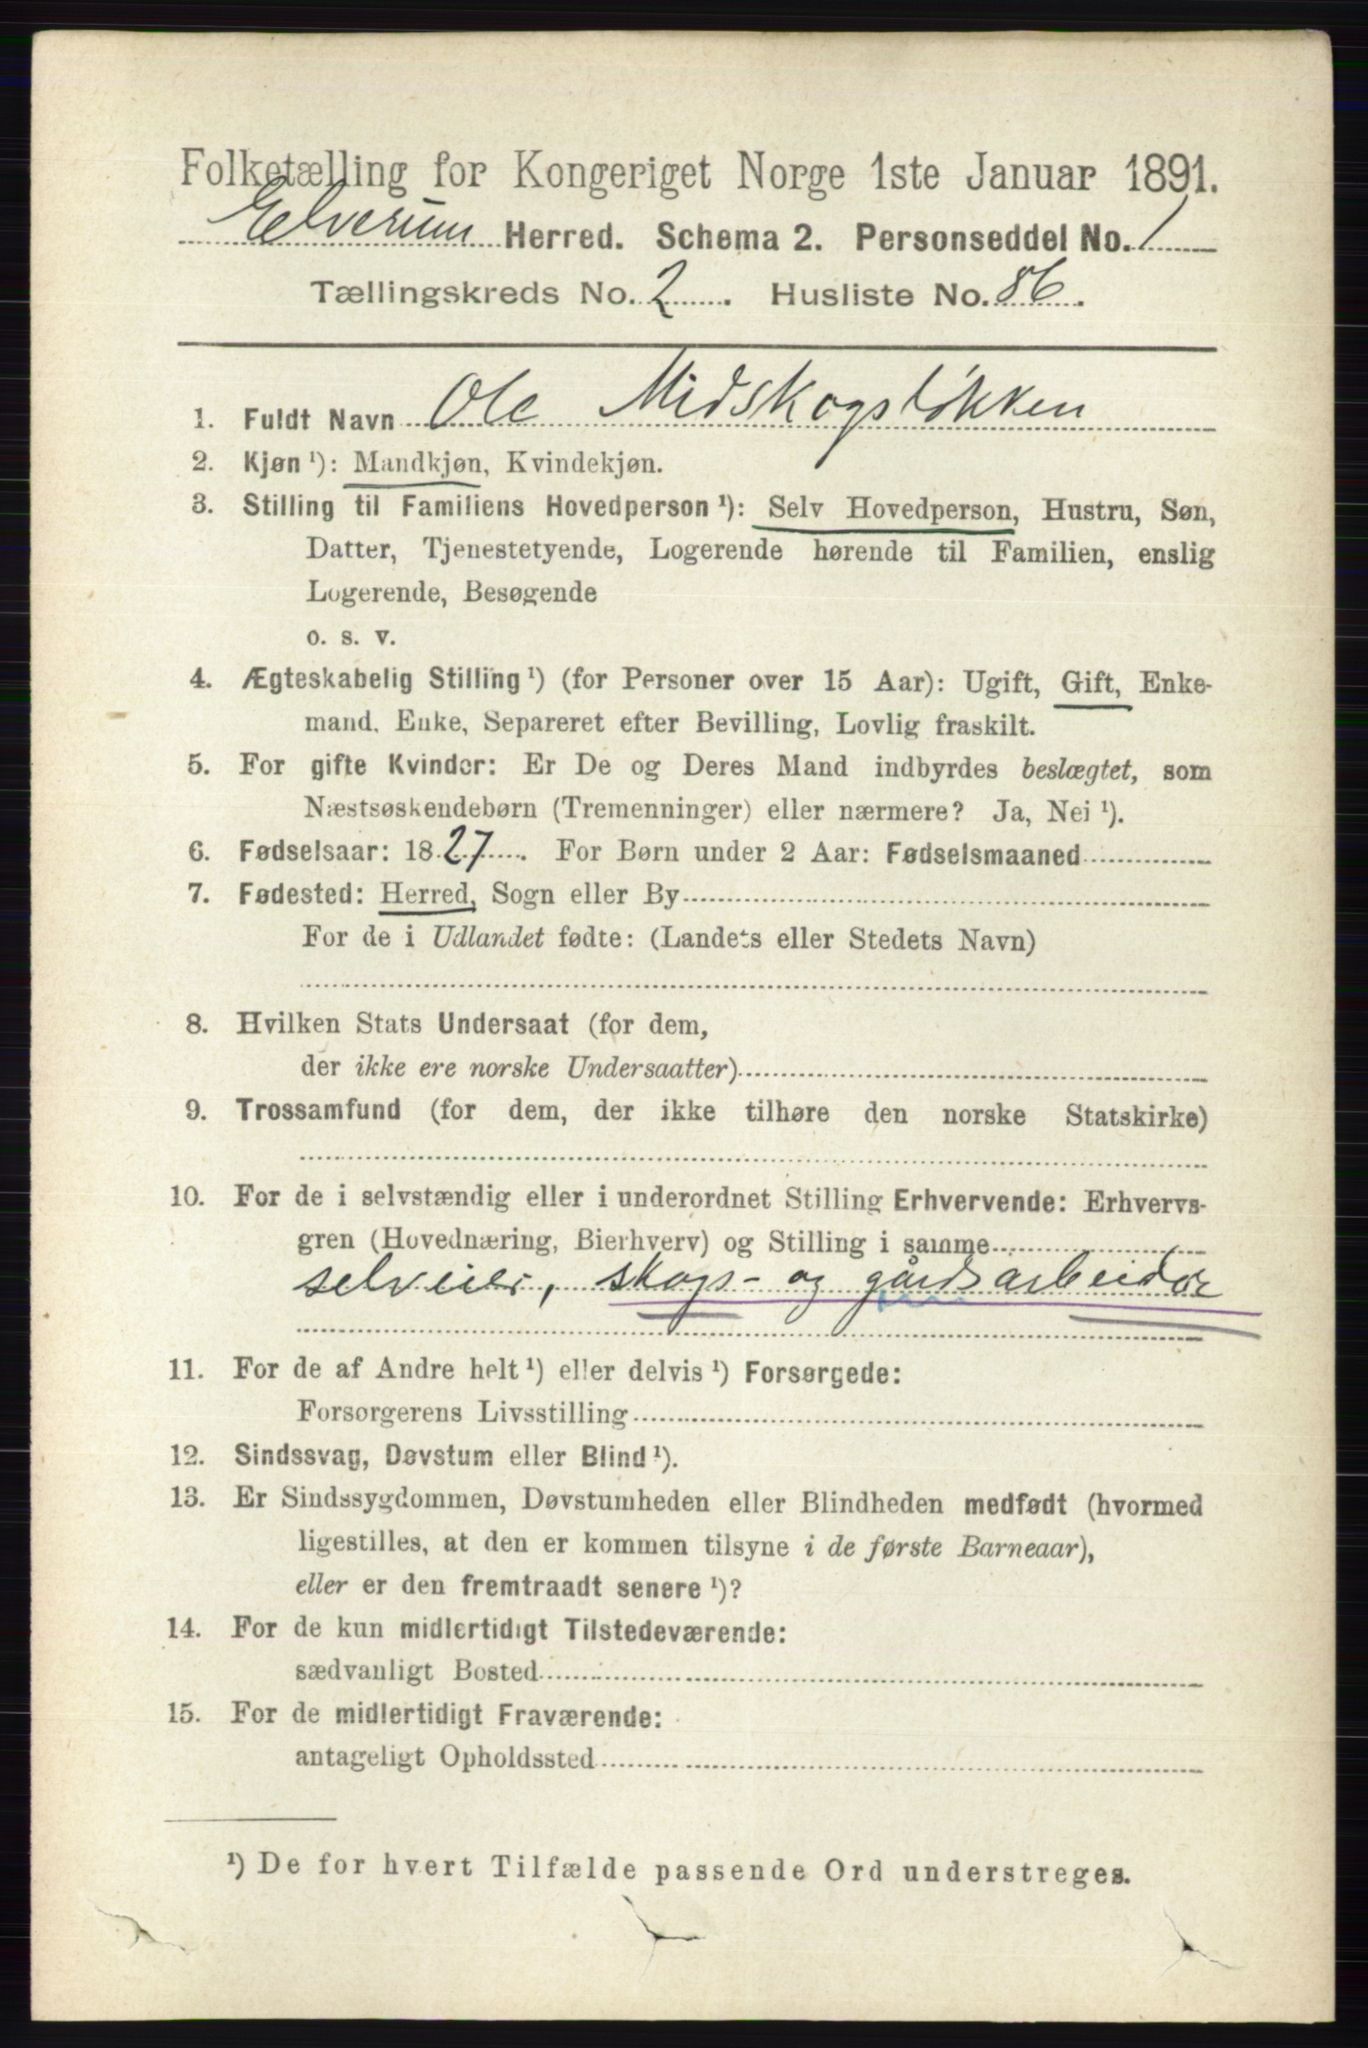 Folketælling for Kongeriget Norge 1ste Januar 1891.
Elverum Herred. Schema 2. Personseddel No. 1
Tællingskreds No. 2. Husliste No. 86.
1. Fuldt Navn Ole Midskogsløkken
2. Kjøn ¹): Mandkjøn, Kvindekjøn.
3. Stilling til Familiens Hovedperson ¹): Selv Hovedperson, Hustru, Søn,
Datter, Tjenestetyende, Logerende hørende til Familien, enslig
Logerende, Besøgende
o. s. v.
4. Ægteskabelig Stilling ¹) (for Personer over 15 Aar): Ugift, Gift, Enke-
mand, Enke, Separeret efter Bevilling, Lovlig fraskilt.
5. For gifte Kvinder: Er De og Deres Mand indbyrdes beslægtet, som
Næstsøskendebørn (Tremenninger) eller nærmere? Ja, Nei ¹).
6. Fødselsaar: 1827. For Børn under 2 Aar: Fødselsmaaned
7. Fødested: Herred, Sogn eller By
For de i Udlandet fødte: (Landets eller Stedets Navn)
8. Hvilken Stats Undersaat (for dem,
der ikke ere norske Undersaatter)
9. Trossamfund (for dem, der ikke tilhøre den norske Statskirke)
10. For de i selvstændig eller i underordnet Stilling Erhvervende: Erhvervs-
gren (Hovednæring, Bierhverv) og Stilling i samme
selveier, skogs- og gårdsarbeider
11. For de af Andre helt ¹) eller delvis ¹) Forsørgede:
Forsørgerens Livsstilling
12. Sindssvag, Døvstum eller Blind ¹).
13. Er Sindssygdommen, Døvstumheden eller Blindheden medfødt (hvormed
ligestilles, at den er kommen tilsyne i de første Barneaar),
eller er den fremtraadt senere ¹)?
14. For de kun midlertidigt Tilstedeværende:
sædvanligt Bosted
15. For de midlertidigt Fraværende:
antageligt Opholdssted
¹) De for hvert Tilfælde passende Ord understreges.